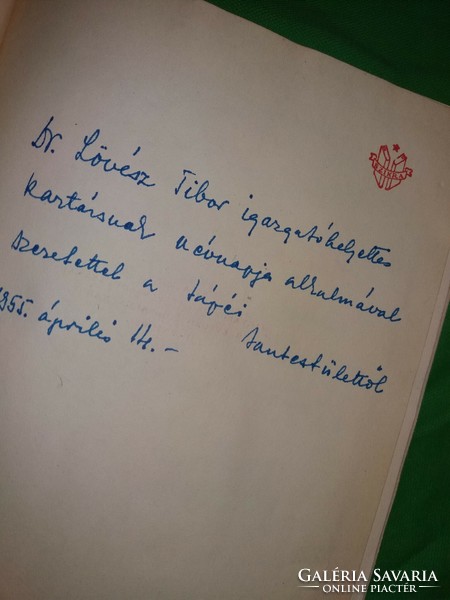 Dr. Lövész Tibor igazgatóhelyettes
kartársnak névnapja alkalmával
szeretettel a tápéi tantestülettől
1955. április 14.-
SZIKRA
GALÉRIA SAVARIA
ONLINE PIACTÉR